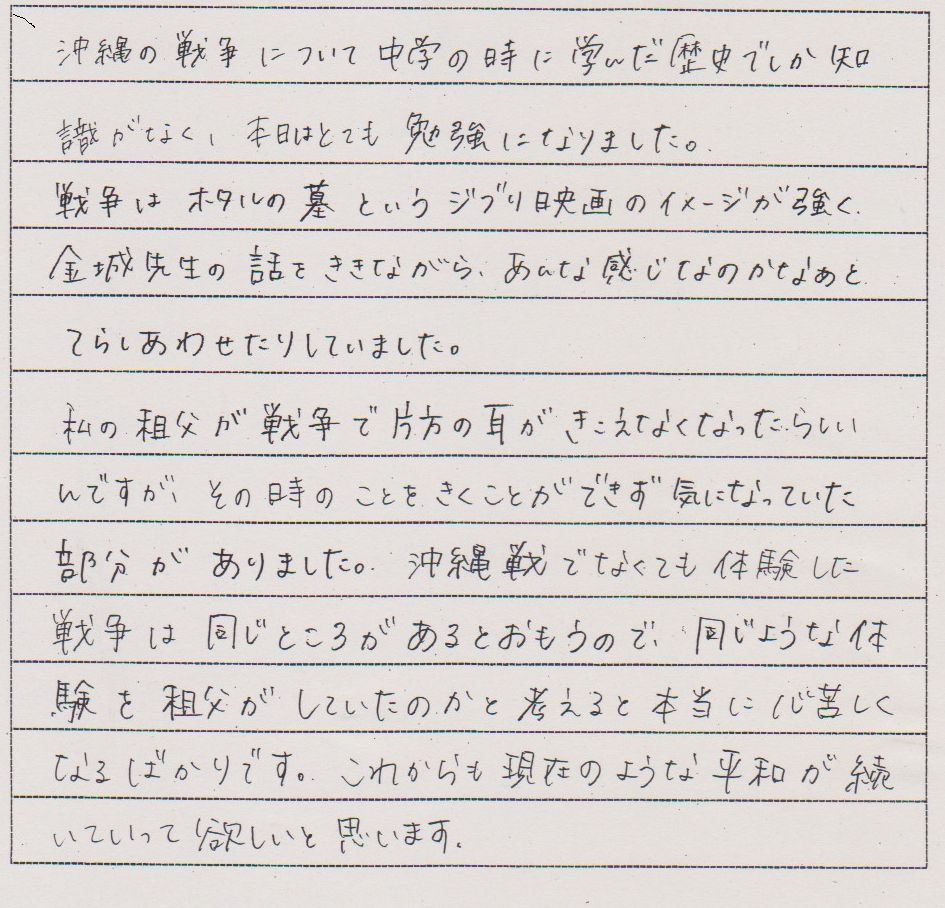 沖縄の戦争について中学の時に学んだ歴史でしか知
識がなく、本日はとても勉強になりました。
戦争はホタルの墓というジブリ映画のイメージが強く、
金城先生の話をききながら、あんな感じなのかなぁと
てらしあわせたりしていました。
私の祖父が戦争で片方の耳がきこえなくなったらしい
んですが、その時のことをきくことができず気になっていた
部分がありました。沖縄戦でなくても体験した
戦争は同じところがあるとおもうので、同じような体
験を祖父がしていたのかと考えると本当に心苦しく
なるばかりです。これからも現在のような平和が続
いていって欲しいと思います。